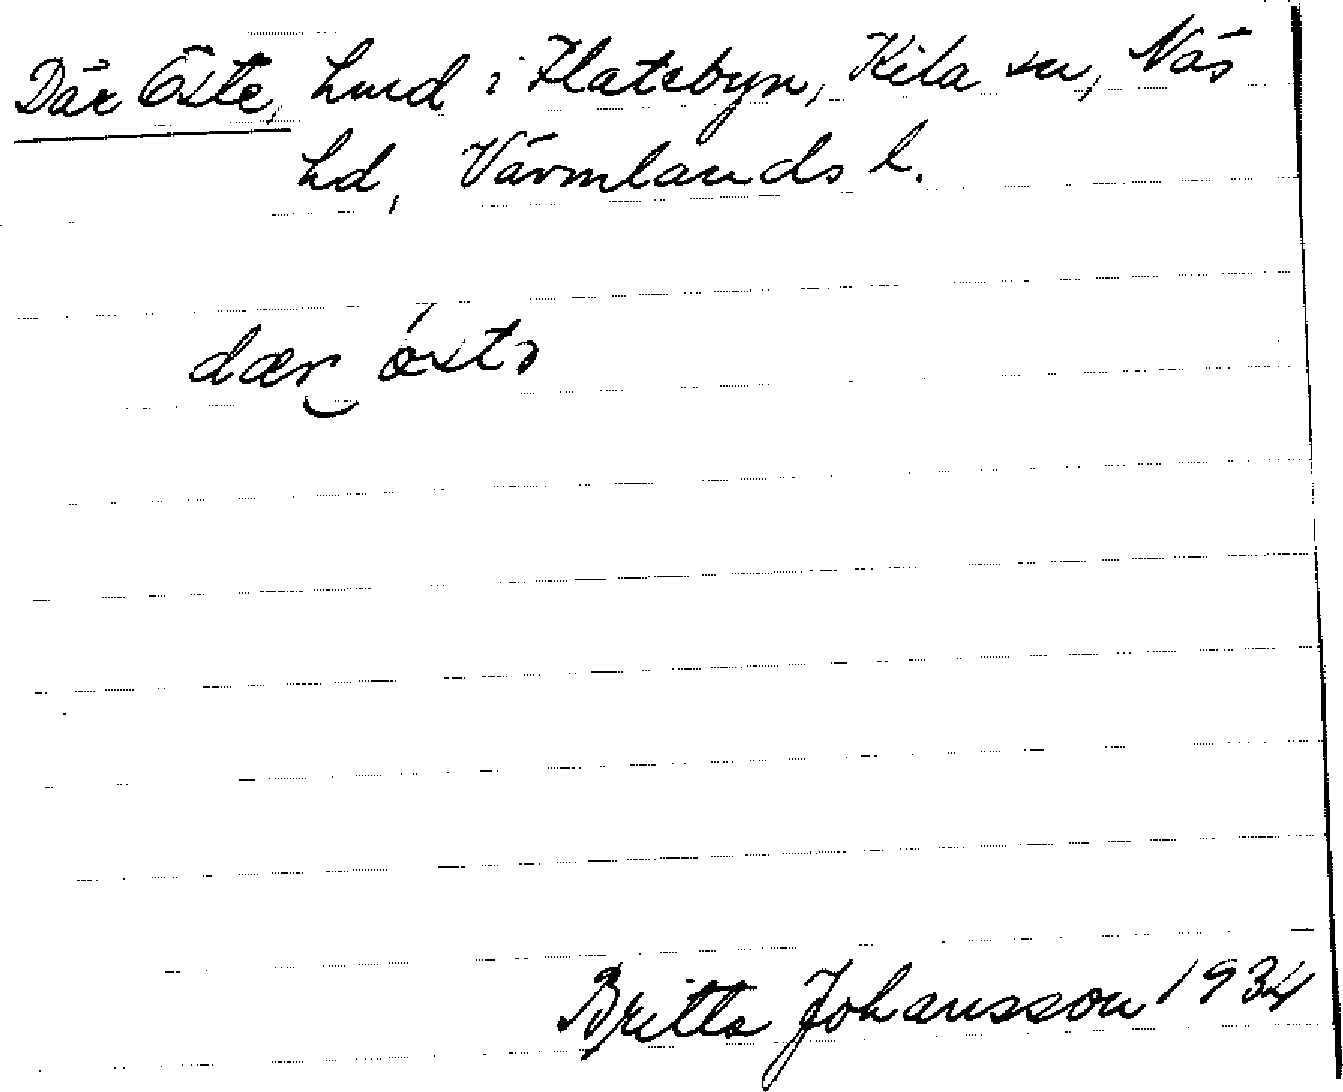 Där Öste, hmd i Flatebyn, Kila sn, Näs
hd, Värmlands l.
dær östə
Britta Johansson 1934